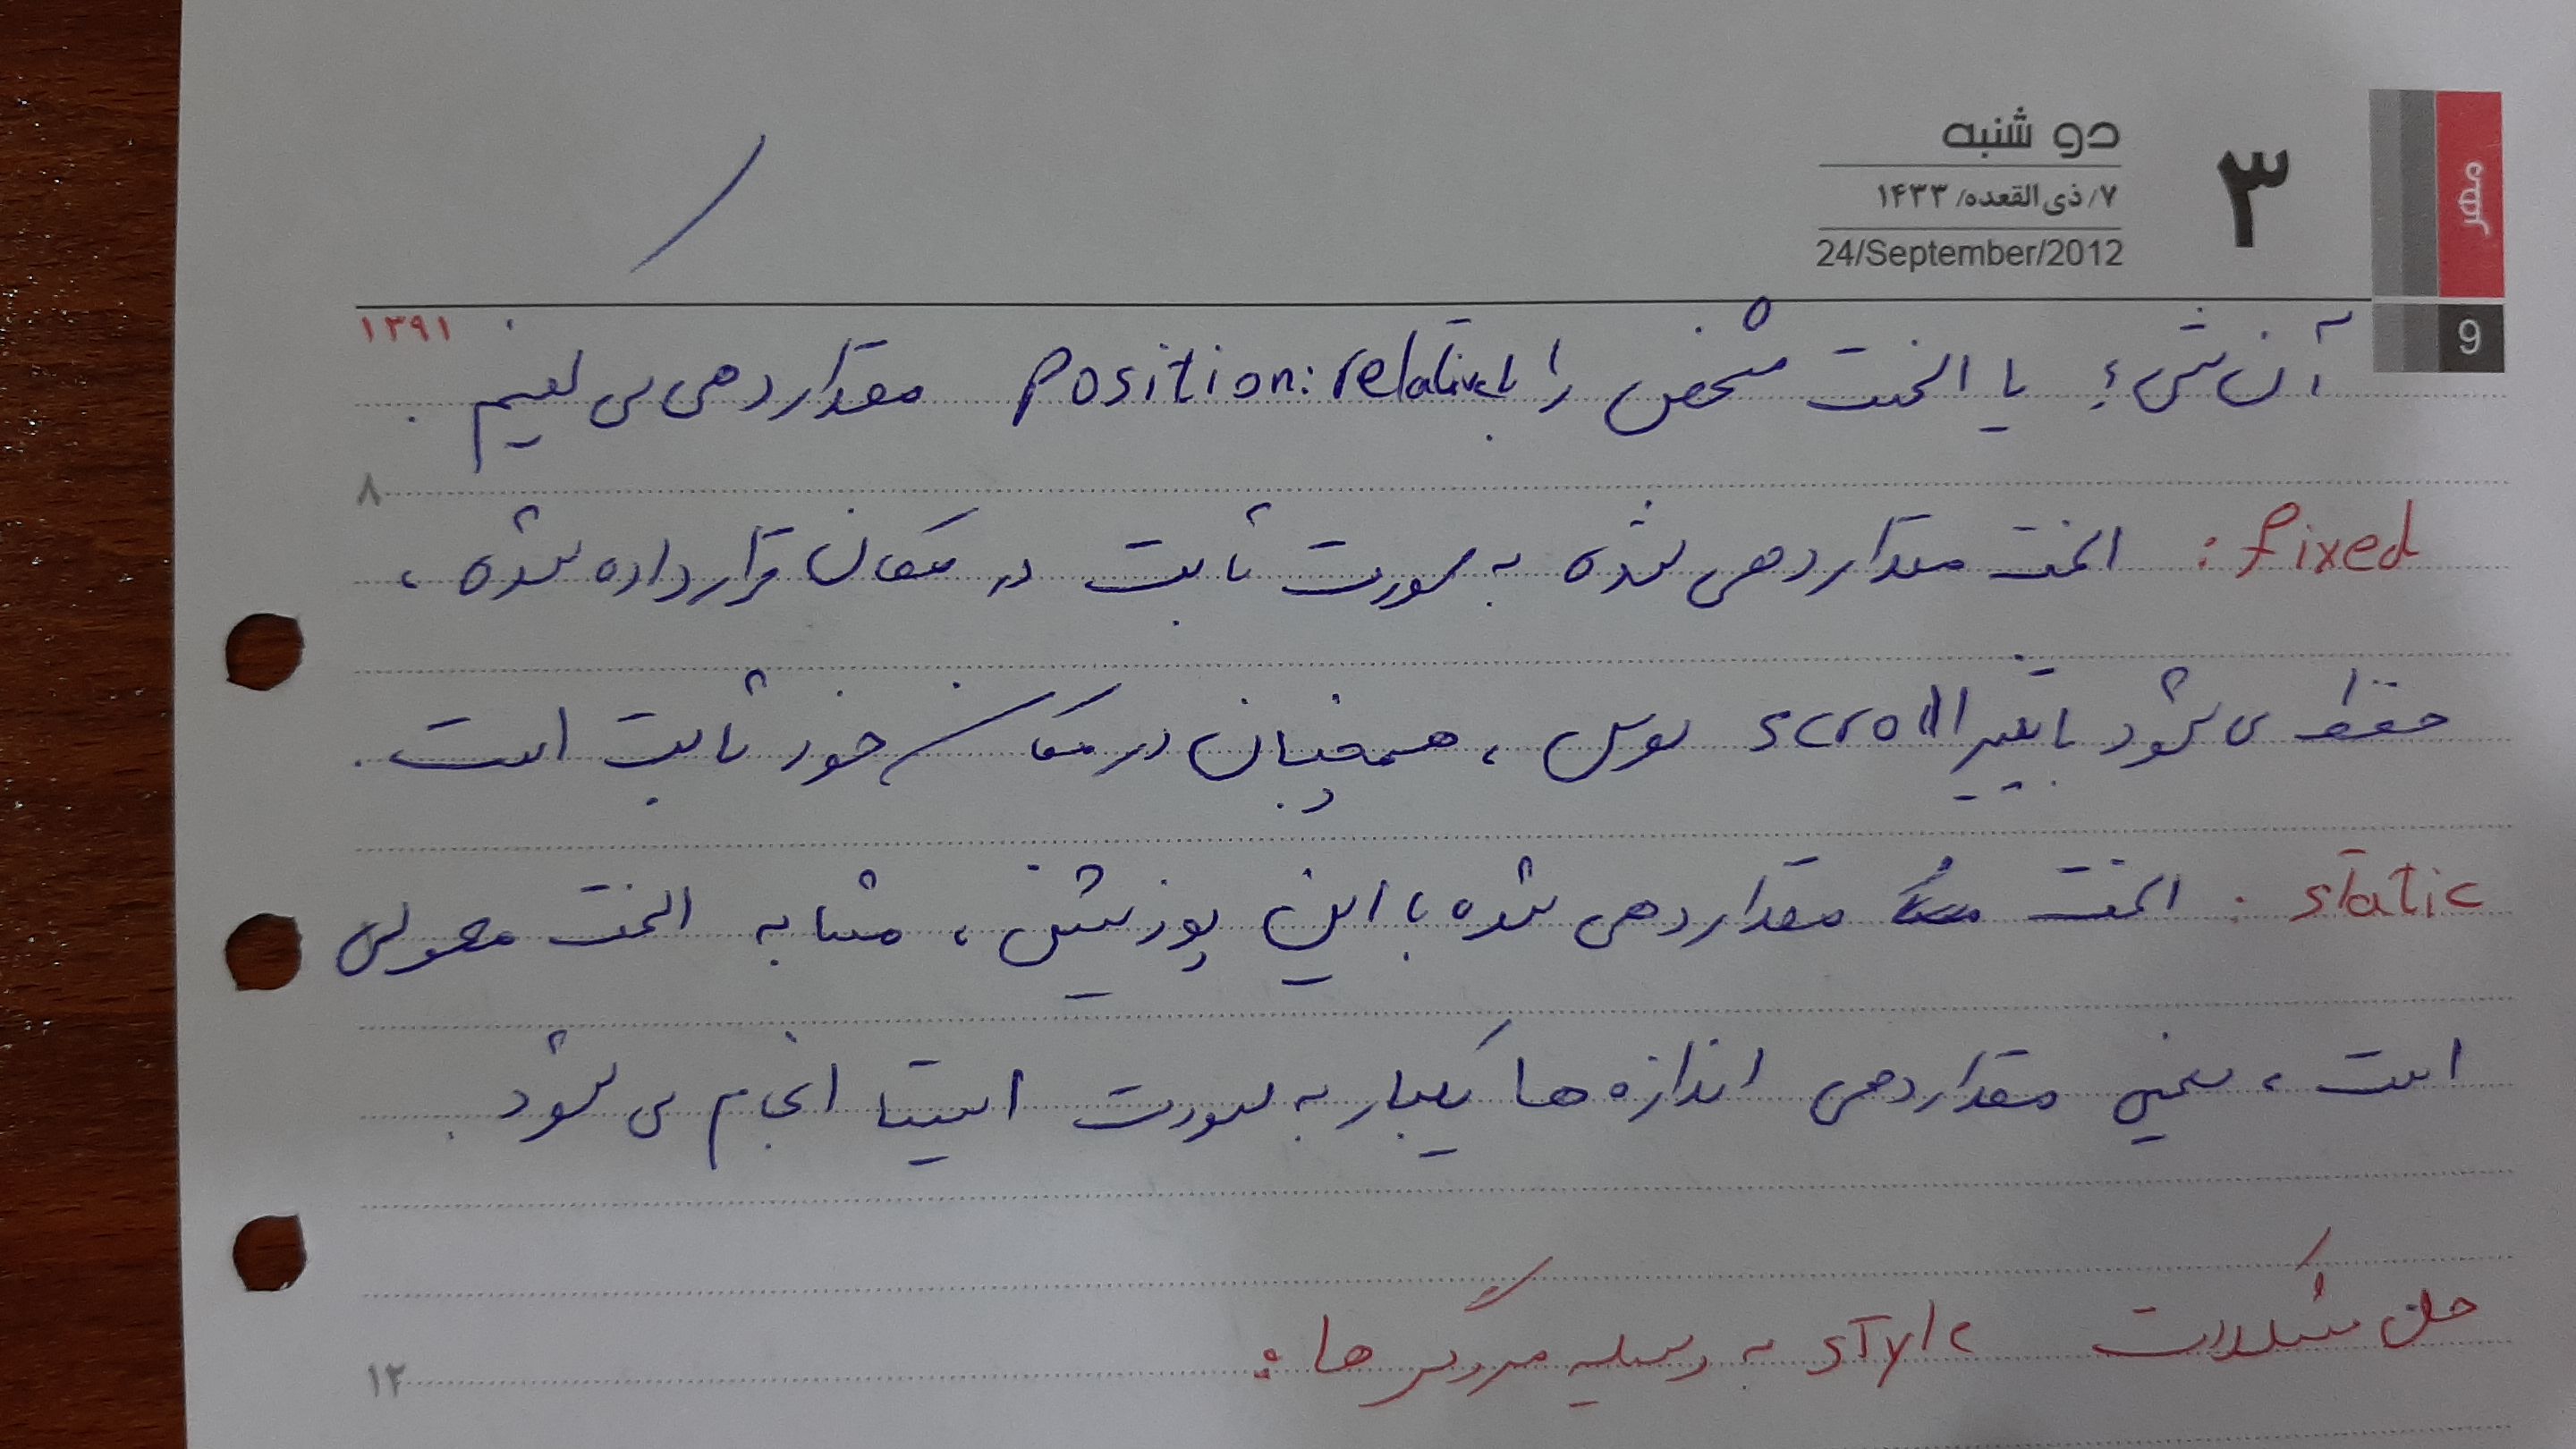 مهر
۳
دو شنبه
۷/ ذی القعده/ ۱۴۳۳
24/September/2012
9
۱۳۹۱
آن شیء یا المنت مشخص را با position: relative مقدار دهی می کنیم .
۸
fixed : المنت مقدار دهی شده به صورت ثابت در مکان قرار داده شده ،
حفظ می شود با تغییر scroll موس ، همچنان در مکان خود ثابت است .
static : المنت مقدار دهی شده با این پوزیشن ، مشابه المنت معمولی
است ، یعنی مقدار دهی اندازه ها یکبار به صورت ایستا انجام می شود .
حل مشکلات style به وسیله مرورگر ها :
۱۲